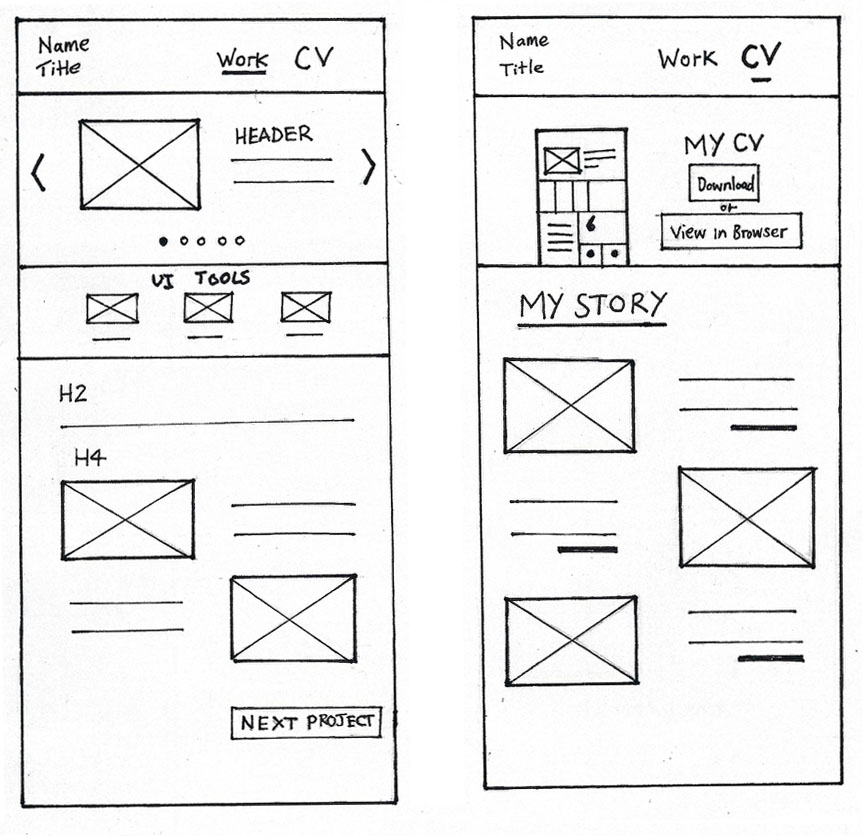 Name
Title
Work CV
HEADER
UI TOOLS
H2
H4
NEXT PROJECT
Name
Title
Work CV
MY CV
Download
or
View in Browser
MY STORY